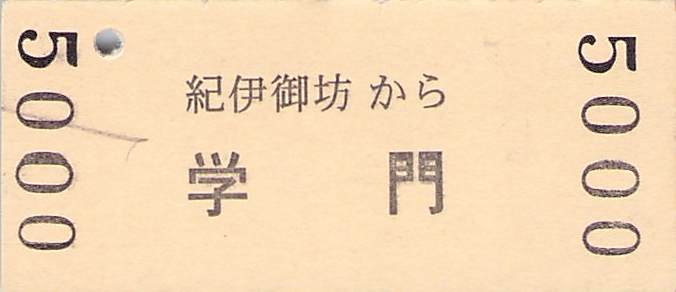 5000
紀伊御坊 から
学 門
5000